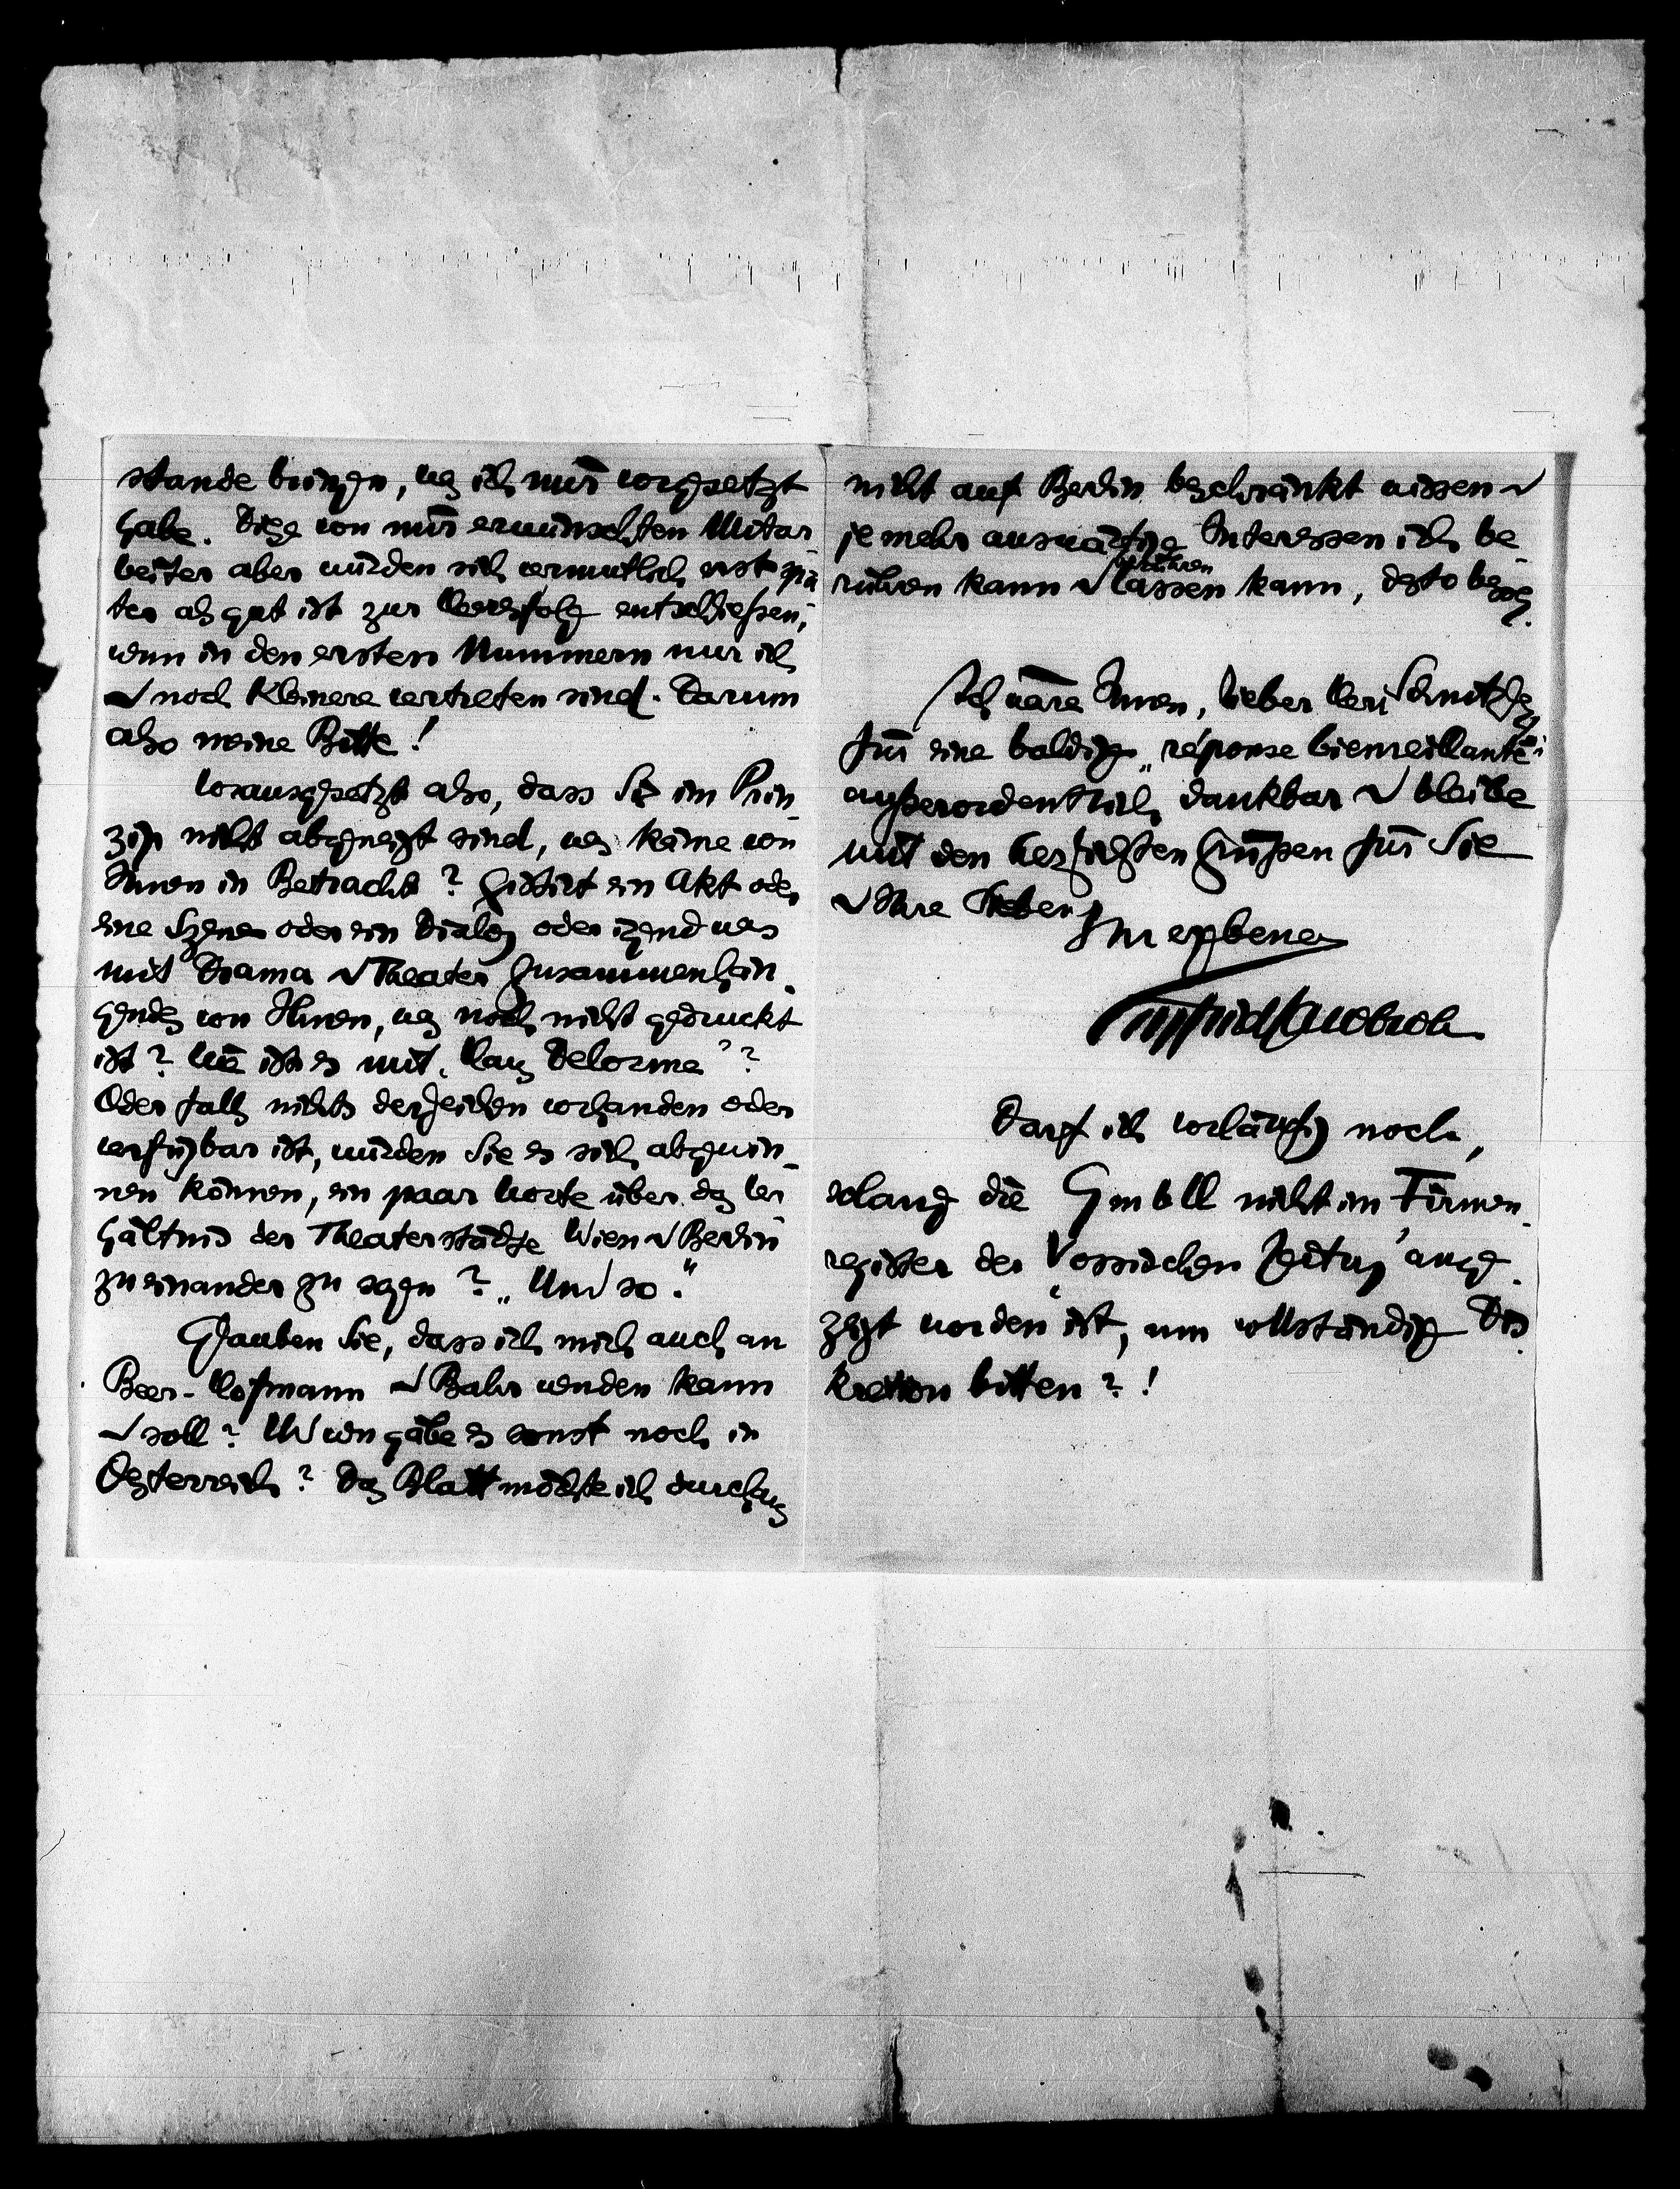 stande bringen, was ich mir vorgesetzt
habe. Diese von mir erwünschten Mitar-
beiter aber würden sich vermutlich erst spä-
ter als gut ist zur Heeresfolge entschliessen,
wenn in den ersten Nummern nur ich
u noch Kleinere vertreten sind. Darum
also meine Bitte!
Vorausgesetzt also, dass Sie im Prin-
zip nicht abgeneigt sind, was käme von
Ihnen in Betracht? Existirt ein Akt oder
eine Szene oder ein Dialog oder irgend was
mit Drama u Theater Zusammenhän-
gendes von Ihnen, was noch nicht gedruckt
ist? Wie ists es mit „Haus Delorme“?
Oder falls nichts dergleichen vorhanden oder
verfügbar ist, würden Sie es sich abgewin-
nen können, ein paar Worte über das Ver-
hältnis der Theaterstädte Wien u Berlin
zueinander zu sagen? „Um so.“
Glauben Sie, dass ich mich auch an
Beer-Hofmann u Bahr wenden kann
u soll? Wen gäbe es sonst noch in
Oesterreich? Das Blatt möchte ich durchaus
nicht auf Berlin beschränkt wissen u
je mehr auswärtige Interessen ich be-
rühren kann u berühren lassen kann, desto besser.
Ich wäre Ihnen, lieber Herr Schnitzler,
für eine baldige „réponse bienveillante“
außerordentlich dankbar u bleibe
mit den herzlichsten Grüßen für Sie
u Ihre Lieben
Ihr ergebener
Siegfried Jacobsohn
Darf ich vorläufig noch,
solang die GmbH nicht im Firmen-
register der „Vossischen Zeitung“ ange-
zeigt worden ist, um vollständige Dis-
kretion bitten?!